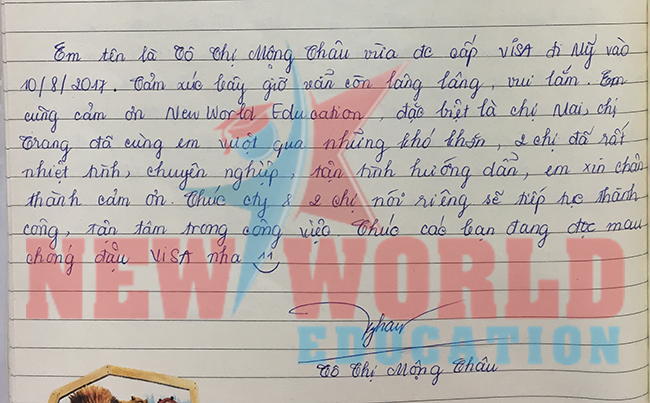 Em tên là Tô Thị Mộng Thâu vừa đc cấp ViSA đi Mỹ vào
10/8/2017. Cảm xúc bây giờ vẫn còn lâng lâng, vui lắm. Em
cũng cảm ơn New World Education, đặc biệt là chị Mai, chị
Trang đã cùng em vượt qua những khó khăn, 2 chị đã rất
nhiệt tình, chuyên nghiệp, tận tình hướng dẫn, em xin chân
thành cảm ơn. Chúc cty & 2 chị nói riêng sẽ tiếp tục thành
công, tận tâm trong công việc. Chúc các bạn đang đọc mau
chóng đậu ViSA nha
NEW WORLD
EDUCATION
Tô Thị Mộng Thâu